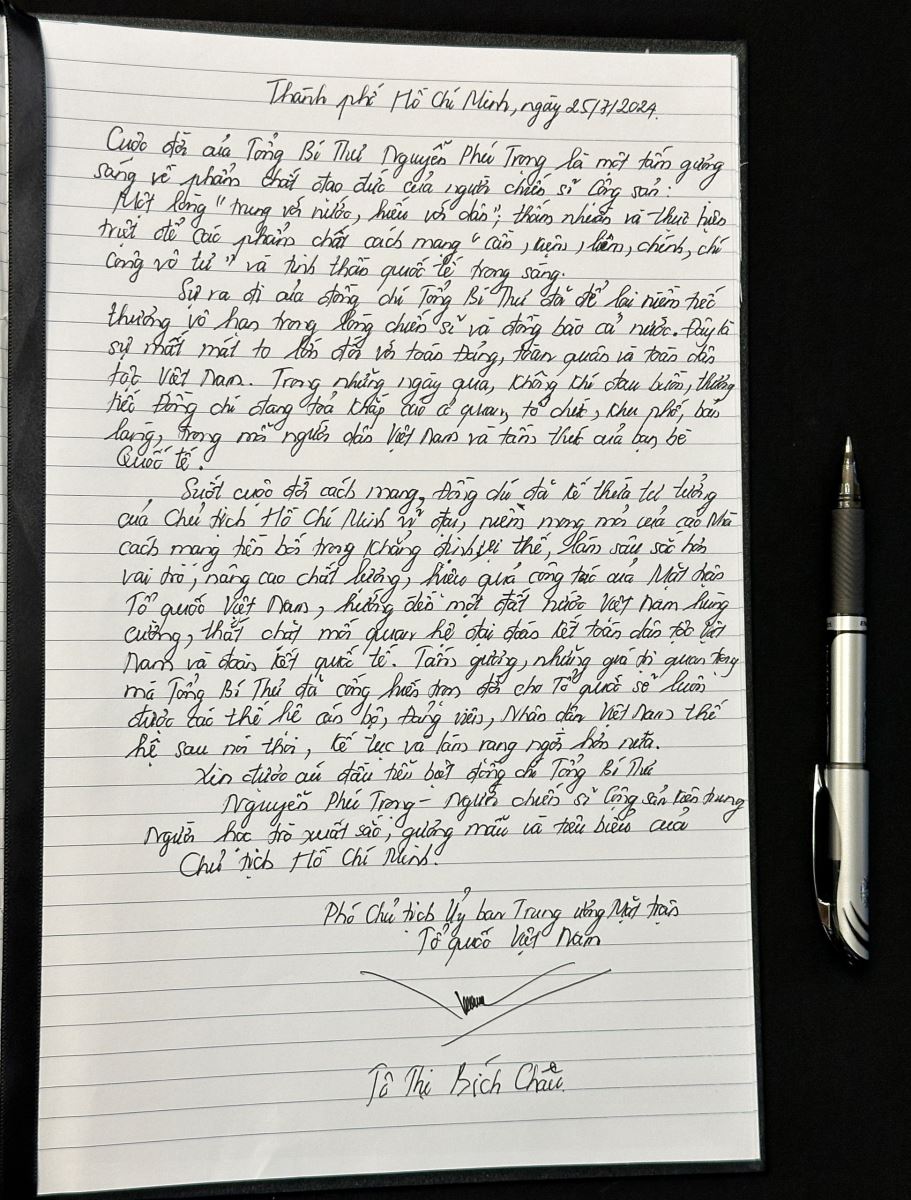 Thành phố Hồ Chí Minh, ngày 25/7/2024.
Cuộc đời của Tổng Bí Thư Nguyễn Phú Trọng là một tấm gương
sáng về phẩm chất đạo đức của người chiến sĩ Cộng sản:
Một lòng "trung với nước, hiếu với dân"; thấm nhuần và thực hiện
triệt để các phẩm chất cách mạng "cần, kiệm, liêm, chính, chí
công vô tư" và tinh thần quốc tế trong sáng.
Sự ra đi của đồng chí Tổng Bí Thư đã để lại niềm tiếc
thương vô hạn trong lòng chiến sĩ và đồng bào cả nước. Đây là
sự mất mát to lớn đối với toàn Đảng, toàn quân và toàn dân
tộc Việt Nam. Trong những ngày qua, không khí đau buồn, thương
tiếc Đồng chí đang toả khắp các cơ quan, tổ chức, khu phố, bản
làng, trong mỗi người dân Việt Nam và tâm thức của bạn bè
Quốc tế.
Suốt cuộc đời cách mạng, Đồng chí đã kế thừa tư tưởng
của Chủ tịch Hồ Chí Minh vĩ đại, niềm mong mỏi của các Nhà
cách mạng tiền bối trong khẳng định vị thế, làm sâu sắc hơn
vai trò, nâng cao chất lượng, hiệu quả công tác của Mặt trận
Tổ quốc Việt Nam, hướng đến một đất nước Việt Nam hùng
cường, thắt chặt mối quan hệ đại đoàn kết toàn dân tộc Việt
Nam và đoàn kết quốc tế. Tấm gương, những giá trị quan trọng
mà Tổng Bí Thư đã cống hiến trọn đời cho Tổ quốc sẽ luôn
được các thế hệ cán bộ, Đảng viên, Nhân dân Việt Nam thế
hệ sau noi theo, kế tục và làm rạng ngời hơn nữa.
Xin được cúi đầu tiễn biệt đồng chí Tổng Bí Thư
Nguyễn Phú Trọng - Người chiến sĩ Cộng sản kiên trung
Người học trò xuất sắc, gương mẫu và tiêu biểu của
Chủ tịch Hồ Chí Minh.
Phó Chủ tịch Ủy ban Trung ương Mặt trận
Tổ quốc Việt Nam
Tô Thị Bích Châu